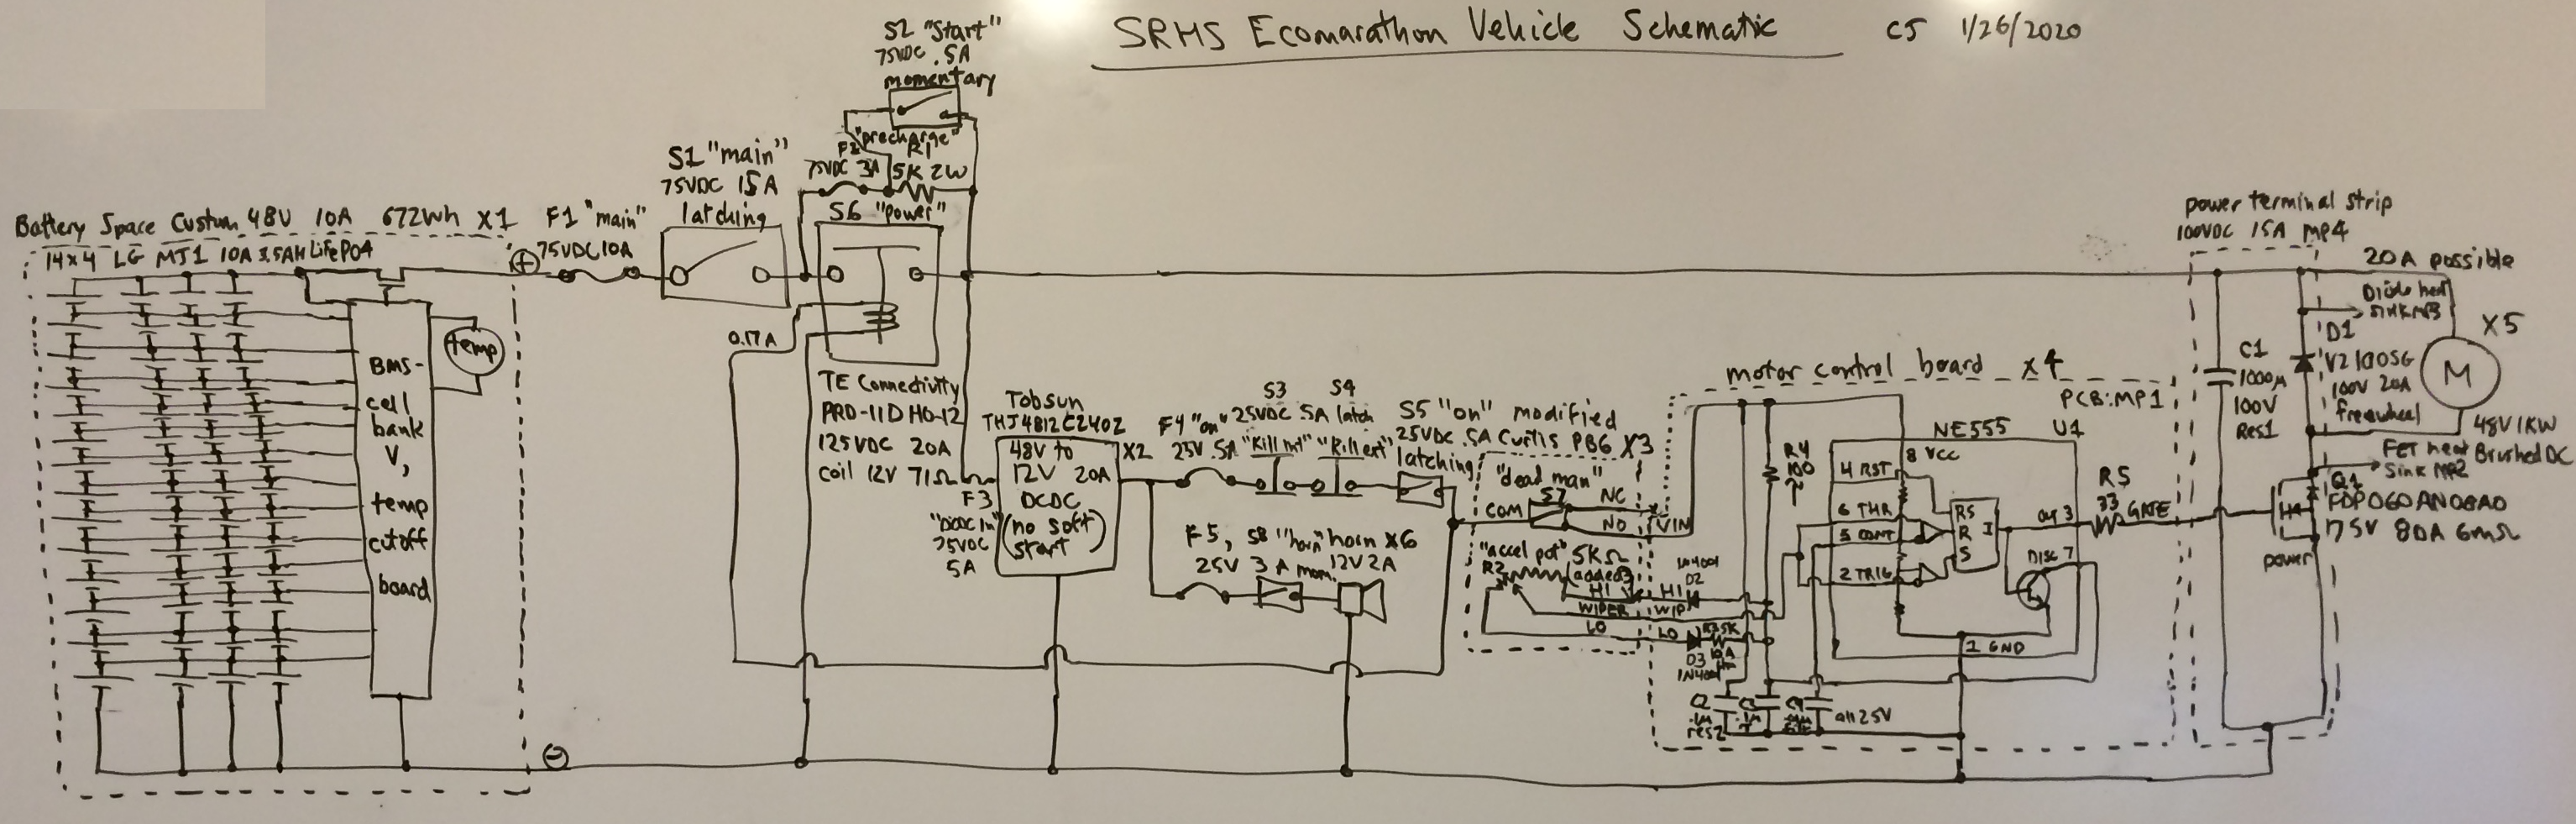 SRHS Ecomarathon Vehicle Schematic CJ 1/26/2020
S2 "Start"
75VDC .5A
momentary
"precharge"
F2 R1
75VDC 3A 5K 2W
S1 "main"
75VDC 15A
latching
S6 "power"
Battery Space Custum 48V 10A 672Wh X1
14x4 LG MJ1 10A 3.5AH LiFePO4
F1 "main"
75VDC 10A
+
temp
BMS-
cell
bank
V,
temp
cutoff
board
-
0.17A
TE Connectivity
PRD-11DH0-12
125VDC 20A
coil 12V 71Ω
F3
"DCDC in"
75VDC
5A
Tobsun
THJ4812C240Z
X2
48V to
12V 20A
DCDC
(no soft
start)
F4 "on"
25V .5A
S3 S4
25VDC .5A latch
"Kill int" "Kill ext"
S5 "on"
25VDC .5A
latching
F5, S8 "horn" horn X6
25V 3A mom. 12V 2A
modified
Curtis PB6 X3
"dead man"
S7
COM
NC
NO
VIN
"accel pot" 5KΩ
R2
(added)
HI
WIPER
LO
motor control board X4
PCB:MP1
HI
WIP
LO
1N4001
D2
R3 5K
D3
1N4001
R4
100
C2
.1μ
res2
C3
.1μ
T
C4
all 25V
NE555 U1
8 VCC
4 RST
6 THR
5 CONT
2 TRIG
RS
R
S
I
out 3
DISC 7
1 GND
R5
33
GATE
power terminal strip
100VDC 15A MP4
20A possible
Diode heat
sink MP3
D1
V2100SG
100V 20A
freewheel
C1
1000μ
100V
Res1
X5
M
48V 1KW
Brushed DC
FET heat
sink MP2
Q1
FDP060AN08A0
75V 80A 6mΩ
power